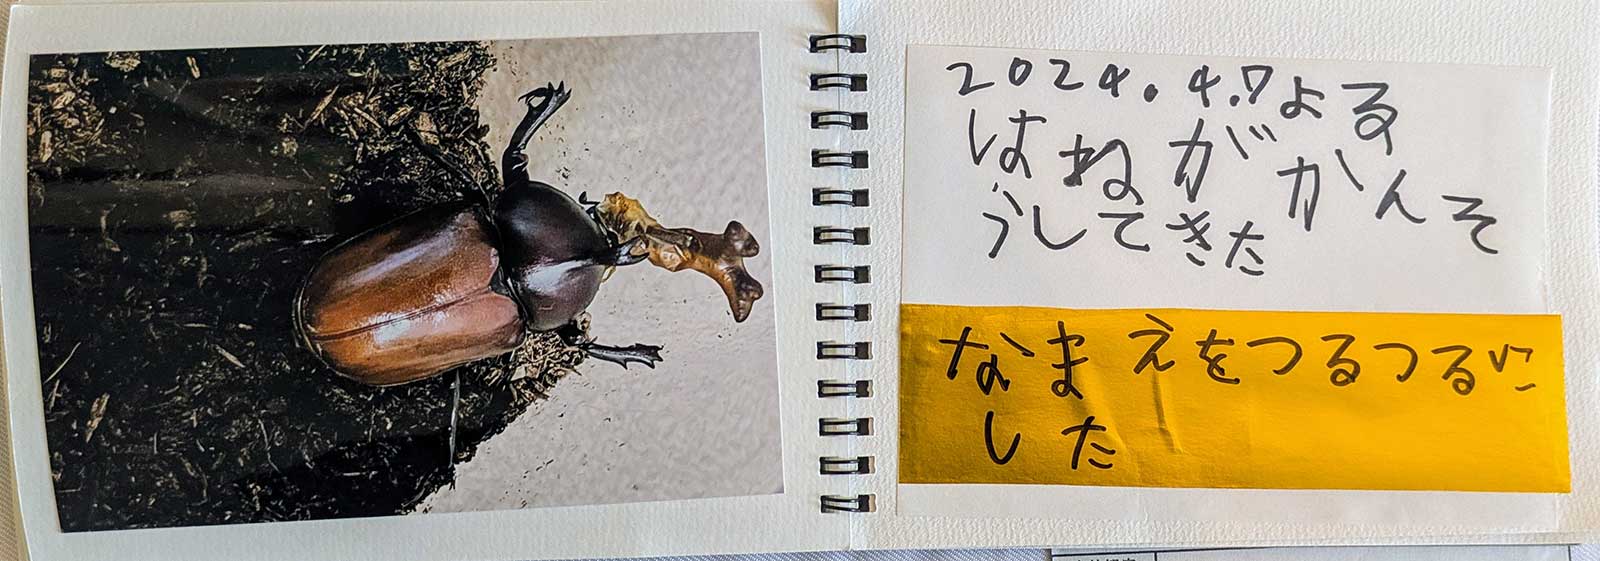 2024.4.7よる
はねがかんそ
うしてきた
なまえをつるつるに
した